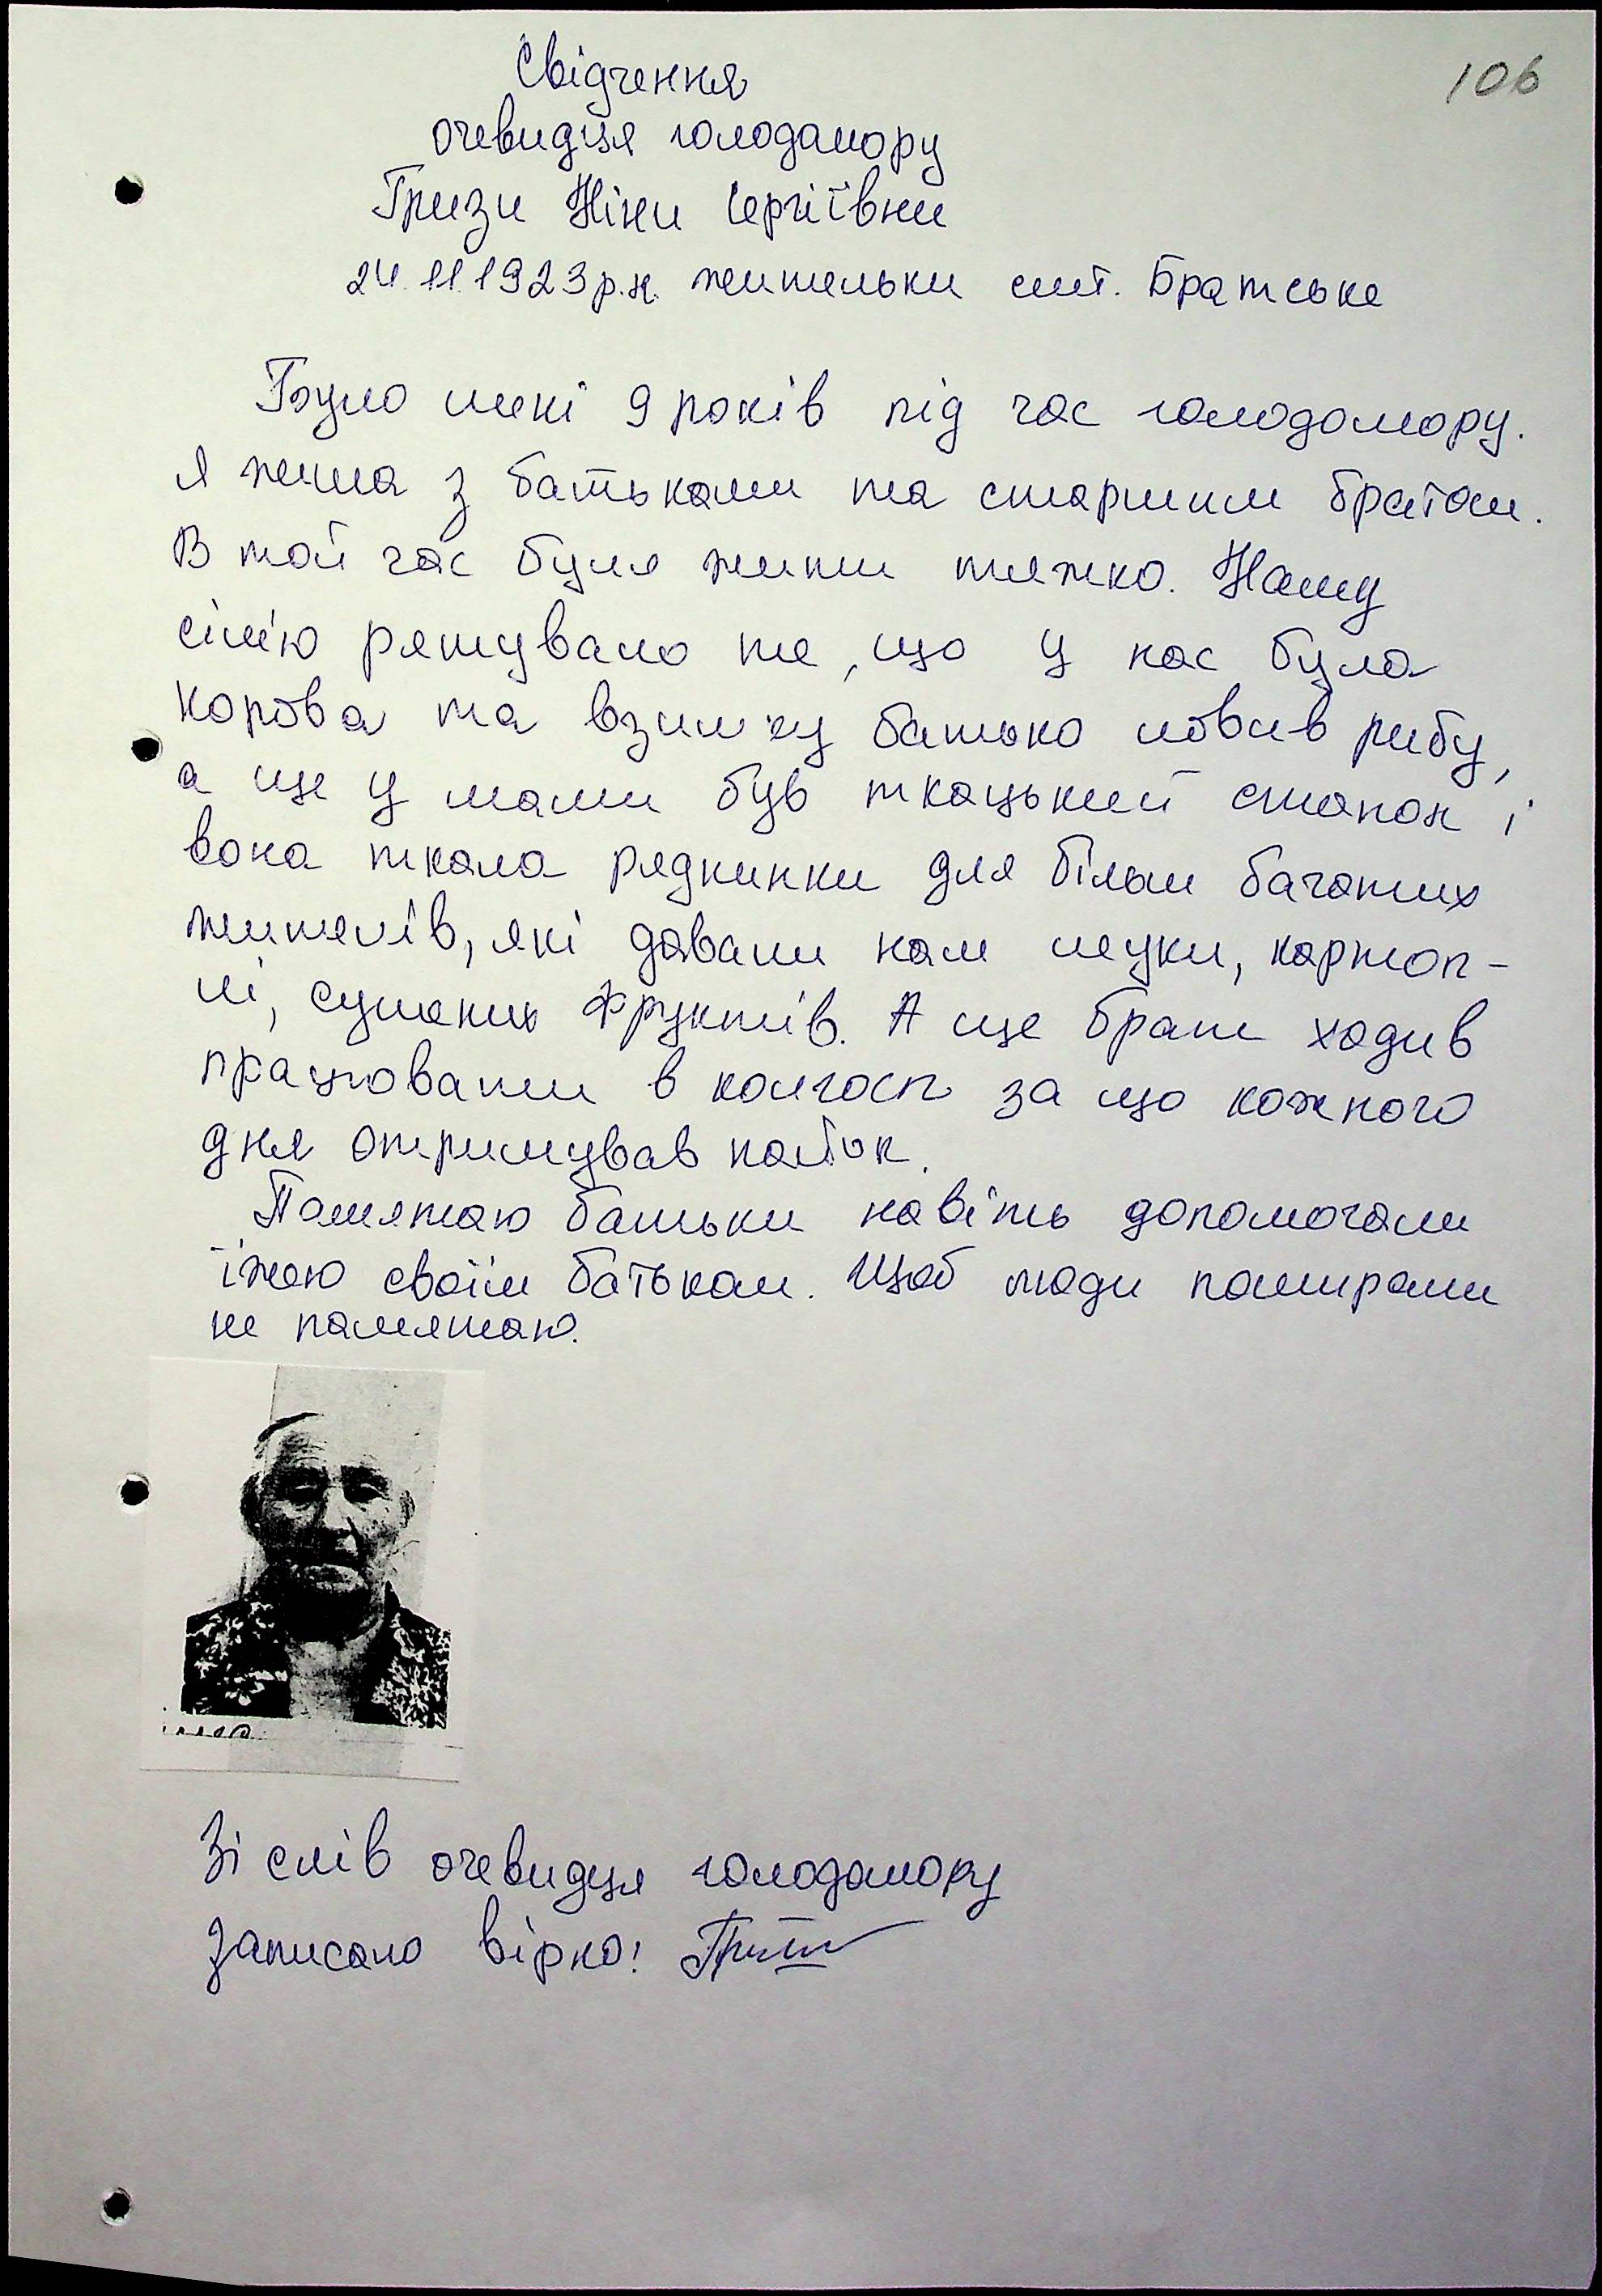 106
Свідчення
очевидця голодомору
Гризи Ніни Сергіївни
24.11.1923р.н. жительки смт. Братське
Було мені 9 років під час голодомору.
Я жила з батьками та старшим братом.
В той час було жити тяжко. Нашу
сім'ю рятувало те, що у нас була
корова та взимку батько ловив рибу,
а ще у мами був ткацький станок і
вона ткала ряднинки для більш багатих
жителів, які давали нам муки, картоп-
лі, сушених фруктів. А ще брат ходив
працювати в колгосп за що кожного
дня отримував пайок.
Памятаю батьки навіть допомогали
їжею своїм батькам. Щоб люди помирали
не памятаю.
Зі слів очевидця голодомору
записано вірно!